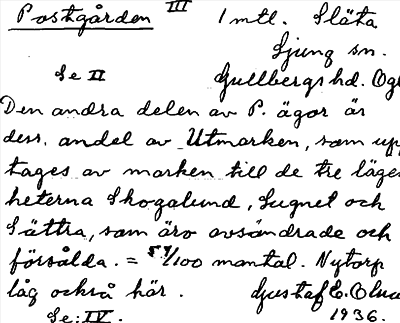 Postgården III 1 mtl. Släta
Ljung sn.
Se II Gullbergs hd. Ögl
Den andra delen av P. ägor är
dess. andel av Utmarken, som upp
tages av marken till de tre läges
heterna Skogalund, Lugnet och
Sättra, som äro avsöndrade och
försålda. = 57/100 mantal. Nytorp
låg också här. Gustaf E. Olau
Se: IV. 1936.